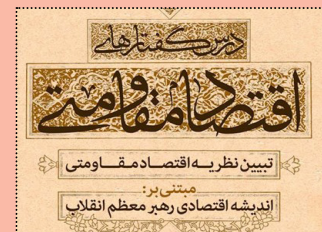 درس گفتارهای
اقتصاد مقاومتی
تبیین نظریه اقتصاد مقاومتی
مبتنی بر:
اندیشه اقتصادی رهبر معظم انقلاب